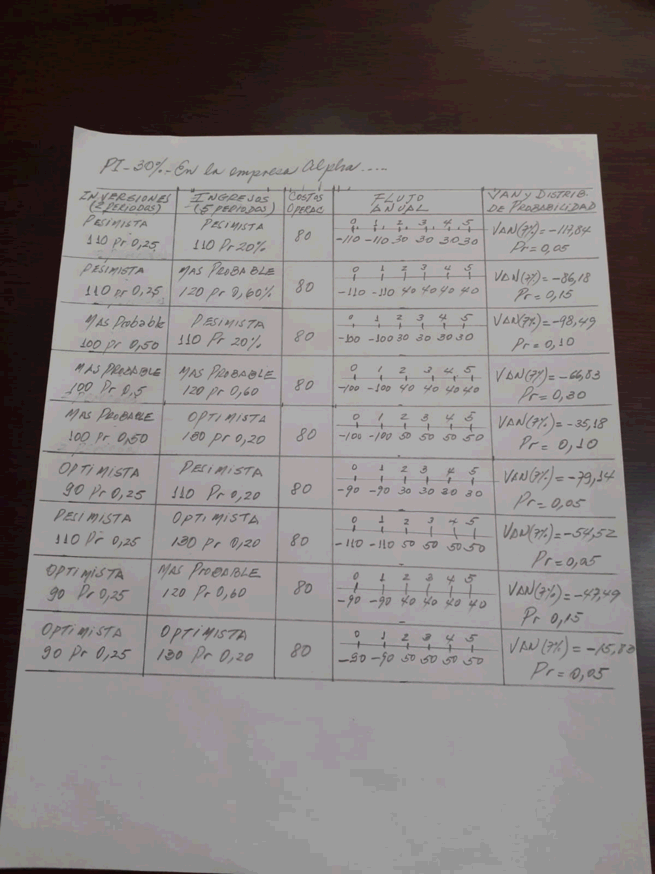 P1-30%- En la empresa Alpha.....
INVERSIONES (2 PERIODOS) INGRESOS (5 PERIODOS) COSTOS OPERAC FLUJO ANUAL VAN Y DISTRIB DE PROBABILIDAD
PESIMISTA PESIMISTA 80 0 1 2 3 4 5 VAN(7%) = -117,84
110 Pr 0,25 110 Pr 20% -110 -110 30 30 30 30 Pr = 0,05
PESIMISTA MAS PROBABLE 80 0 1 2 3 4 5 VAN(7%) = -86,18
110 Pr 0,25 120 Pr 0,60% -110 -110 40 40 40 40 Pr = 0,15
MAS Probable PESIMISTA 80 0 1 2 3 4 5 VAN(7%) = -98,49
100 Pr 0,50 110 Pr 20% -100 -100 30 30 30 30 Pr = 0,10
MAS PROBABLE MAS PROBABLE 80 0 1 2 3 4 5 VAN(7%) = -66,83
100 Pr 0,5 120 Pr 0,60 -100 -100 40 40 40 40 Pr = 0,30
MAS PROBABLE OPTIMISTA 80 0 1 2 3 4 5 VAN(7%) = -35,18
100 Pr 0,50 130 Pr 0,20 -100 -100 50 50 50 50 Pr = 0,10
OPTIMISTA PESIMISTA 80 0 1 2 3 4 5 VAN(7%) = -79,14
90 Pr 0,25 110 Pr 0,20 -90 -90 30 30 30 30 Pr = 0,05
PESIMISTA OPTIMISTA 80 0 1 2 3 4 5 VAN(7%) = -54,52
110 Pr 0,25 130 Pr 0,20 -110 -110 50 50 50 50 Pr = 0,05
OPTIMISTA MAS PROBABLE 80 0 1 2 3 4 5 VAN(7%) = -47,49
90 Pr 0,25 120 Pr 0,60 -90 -90 40 40 40 40 Pr 0,15
OPTIMISTA OPTIMISTA 80 0 1 2 3 4 5 VAN(7%) = -15,83
90 Pr 0,25 130 Pr 0,20 -90 -90 50 50 50 50 Pr = 0,05